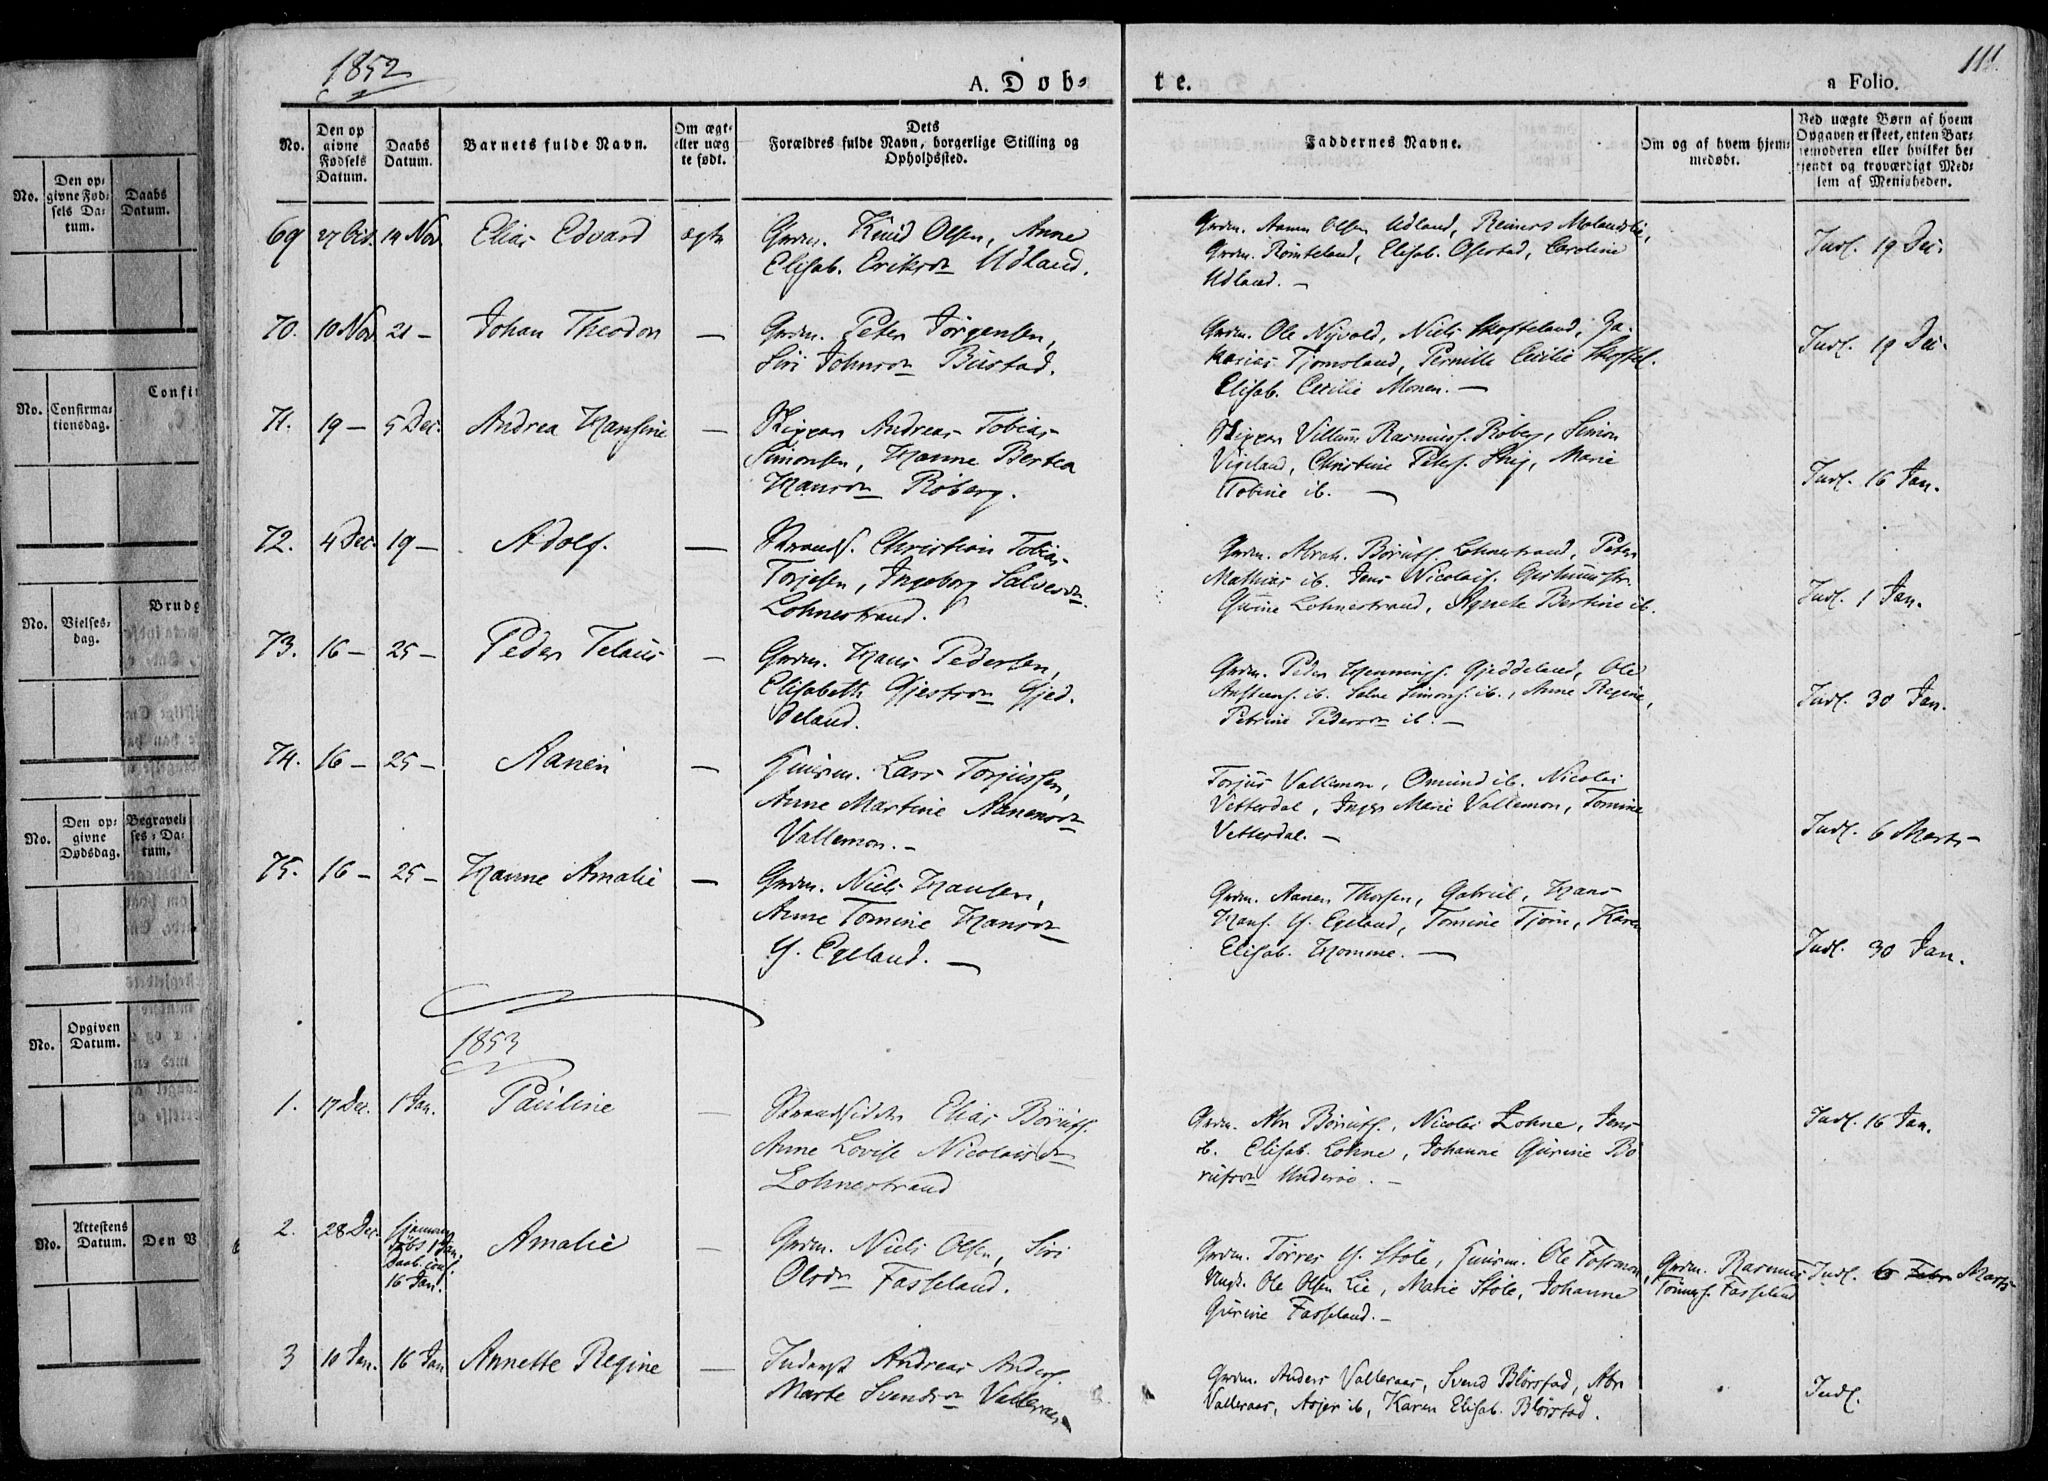 1852
A. Døb-
te.
a Folio.
111.
No.
Den op
givne
Fødsels
Datum.
Daabs
Datum.
Barnets fulde Navn.
Om ægt-
eller uæg
te født.
Dets
Forældres fulde Navn, borgerlige Stilling og
Opholdssted.
Faddernes Navne.
Om og af hvem hjem-
medøbt.
Ved uægte Børn af hvem
Opgaven er skeet, enten Bar-
nemoderen eller hvilket be-
kjendt og troværdigt Med-
lem af Menigheden.
69 27 Oct. 14 Nov. Elias Edvard ægte
Grdm. Knud Olsen, Anne
Elisab. Eriksdr Udland.
Grdm. Aanen Olsen Udland, Reiners
Grdm. Elisab. Caroline
Udland. —
Indl. 19 Dec.
70. 10 Nov. 21 — Johan Theodor —
Grdm. Peter Jørgensen,
Siri Johnsdr Bustad.
Grdm. Ole Nijvold, Niels Skofteland, Za-
karias Tjomsland, Pernille Cecilie Skoftel.
Elisab. Cecilie Monen. —
Indl. 19 Dec.
71. 19 — 5 Dec. Andrea Hansine —
Skipper Andreas Tobias
Simonsen, Hanne Bertea
Hansdr Roberg.
Skipper Villum Rasmuss. Roberg, Simon
Vigeland, Christine Marie
Tobine ib. —
Indl. 16 Jan.
72. 4 Dec. 19 — Adolf. —
Strands. Christian Tobias
Torjesen, Ingeborg Salvesdr
Lohnestrand.
Grdm. Abrah. Børufs. Lohnestrand, Peter
Mathias ib. Jens Nicolais.
Gurine Lohnestrand, Agnete Bertine ib.
Indl. 1 Jan.
73. 16 — 25 — Peder Telaus —
Grdm. Hans Pedersen,
Elisabeth Gjestsdr Gjed-
deland.
Grdm. Peder Hennings. Gjeddeland, Ole
Austens. ib. Salve Simons. ib., Anne Regine,
Petrine Pedersdr ib. —
Indl. 30 Jan.
74. 16 — 25 — Aanen —
Huusm. Lars Torjussen,
Anne Martine Aanensdr
Vallemon. —
Torjus Vallemon, Omund ib. Nicolai
Vetterdal, Inger Marie Vallemon, Tomine
Vetterdal. —
Indl. 6 Marts —
75. 16 — 25 — Hanne Amalie —
Grdm. Niels Hansen,
Anne Tomine Hansdr
Y. Egeland. —
Grdm. Aanen Thorsen, Gabriel, Hans
Hans. Y. Egeland, Tomine Tjøm, Karen
Elisab. Homme. —
Indl. 30 Jan.
1853
1. 17 Dec. 1 Jan. Pauline —
Strandsidder Elias Børufs.
Anne Lovise Nicolaisdr
Lohnestrand
Grdm. Abr Børufs., Nicolai Lohne, Jens
ib. Elisab. Lohne, Johanne Gurine Bø
rufsdr Underøe. —
Indl. 16 Jan.
2. 28 Dec. Hjemme
døbt 1 Jan.
Daab. conf.
16 Jan. Amalie —
Grdm. Niels Olsen, Siri
Olsdr Fasseland.
Grdm. Tørres Y. Støle, Huusm. Ole Fossmon,
Ungk. Ole Olsen Lie, Marie Støle, Johanne
Gurine Fasseland. —
Grdm. Rasmus
Tønnes. Fasseland
Indl. 6 Febr. Marts
3 10 Jan. 16 Jan Annette Regine —
Inderst Andreas Anders.
Marte Svendsdr Valleraas
Grdm. Anders Valleraas, Svend Blørstad, Abr
Valleraas, Asjer ib, Karen Elisab. Blørstad.
Indl.
No.
Den op-
givne Fød-
sels Da-
tum.
Daabs
Datum.
No.
Confirma-
tionsdag.
Confi
No.
Vielses-
dag.
Brudg
No.
Den op-
givne
Dødsdag.
Begravel-
ses-Da-
tum.
No.
Opgiven
Datum.
No.
Attestens
Datum.
Den V